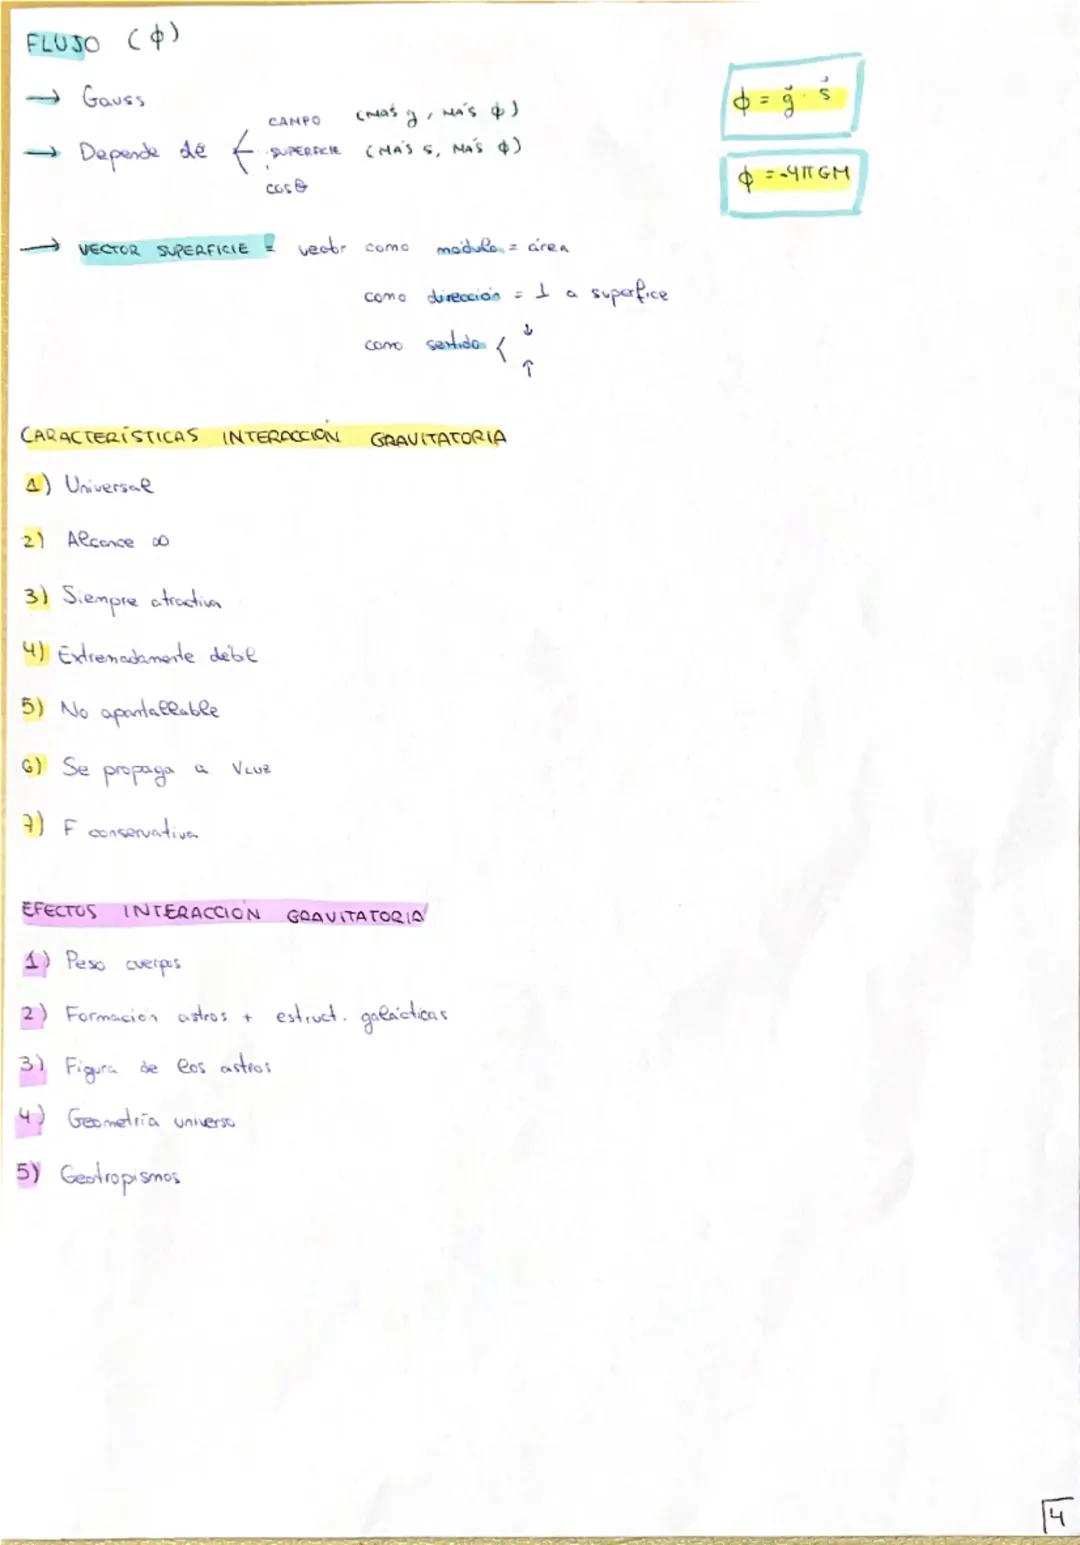 FLUJO (ϕ)
→ Gauss
→ Depende de { CAMPO (MÁS g, MÁS ϕ)
SUPERFICIE (MÁS S, MÁS ϕ)
cos θ
ϕ = g⃗ · s⃗
ϕ = -4πGM
→ VECTOR SUPERFICIE = vector como módulo = área
como dirección = ⊥ a superfice
como sentido < ↓
↑
CARACTERÍSTICAS INTERACCIÓN GRAVITATORIA
1) Universal
2) Alcance ∞
3) Siempre atractiva
4) Extremadamente débil
5) No apantallable
6) Se propaga a VLUZ
7) F conservativa
EFECTOS INTERACCIÓN GRAVITATORIA
1) Peso cuerpos
2) Formación astros + estruct. galácticas
3) Figura de los astros
4) Geometría universo
5) Geotropismos
4